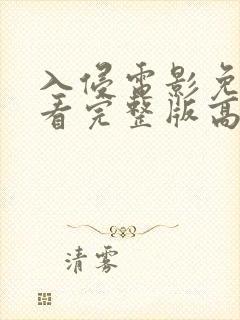 入侵雷影免
看完整版高
清雾